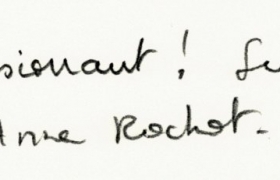 sionnant ! Su
Anne Rochot.